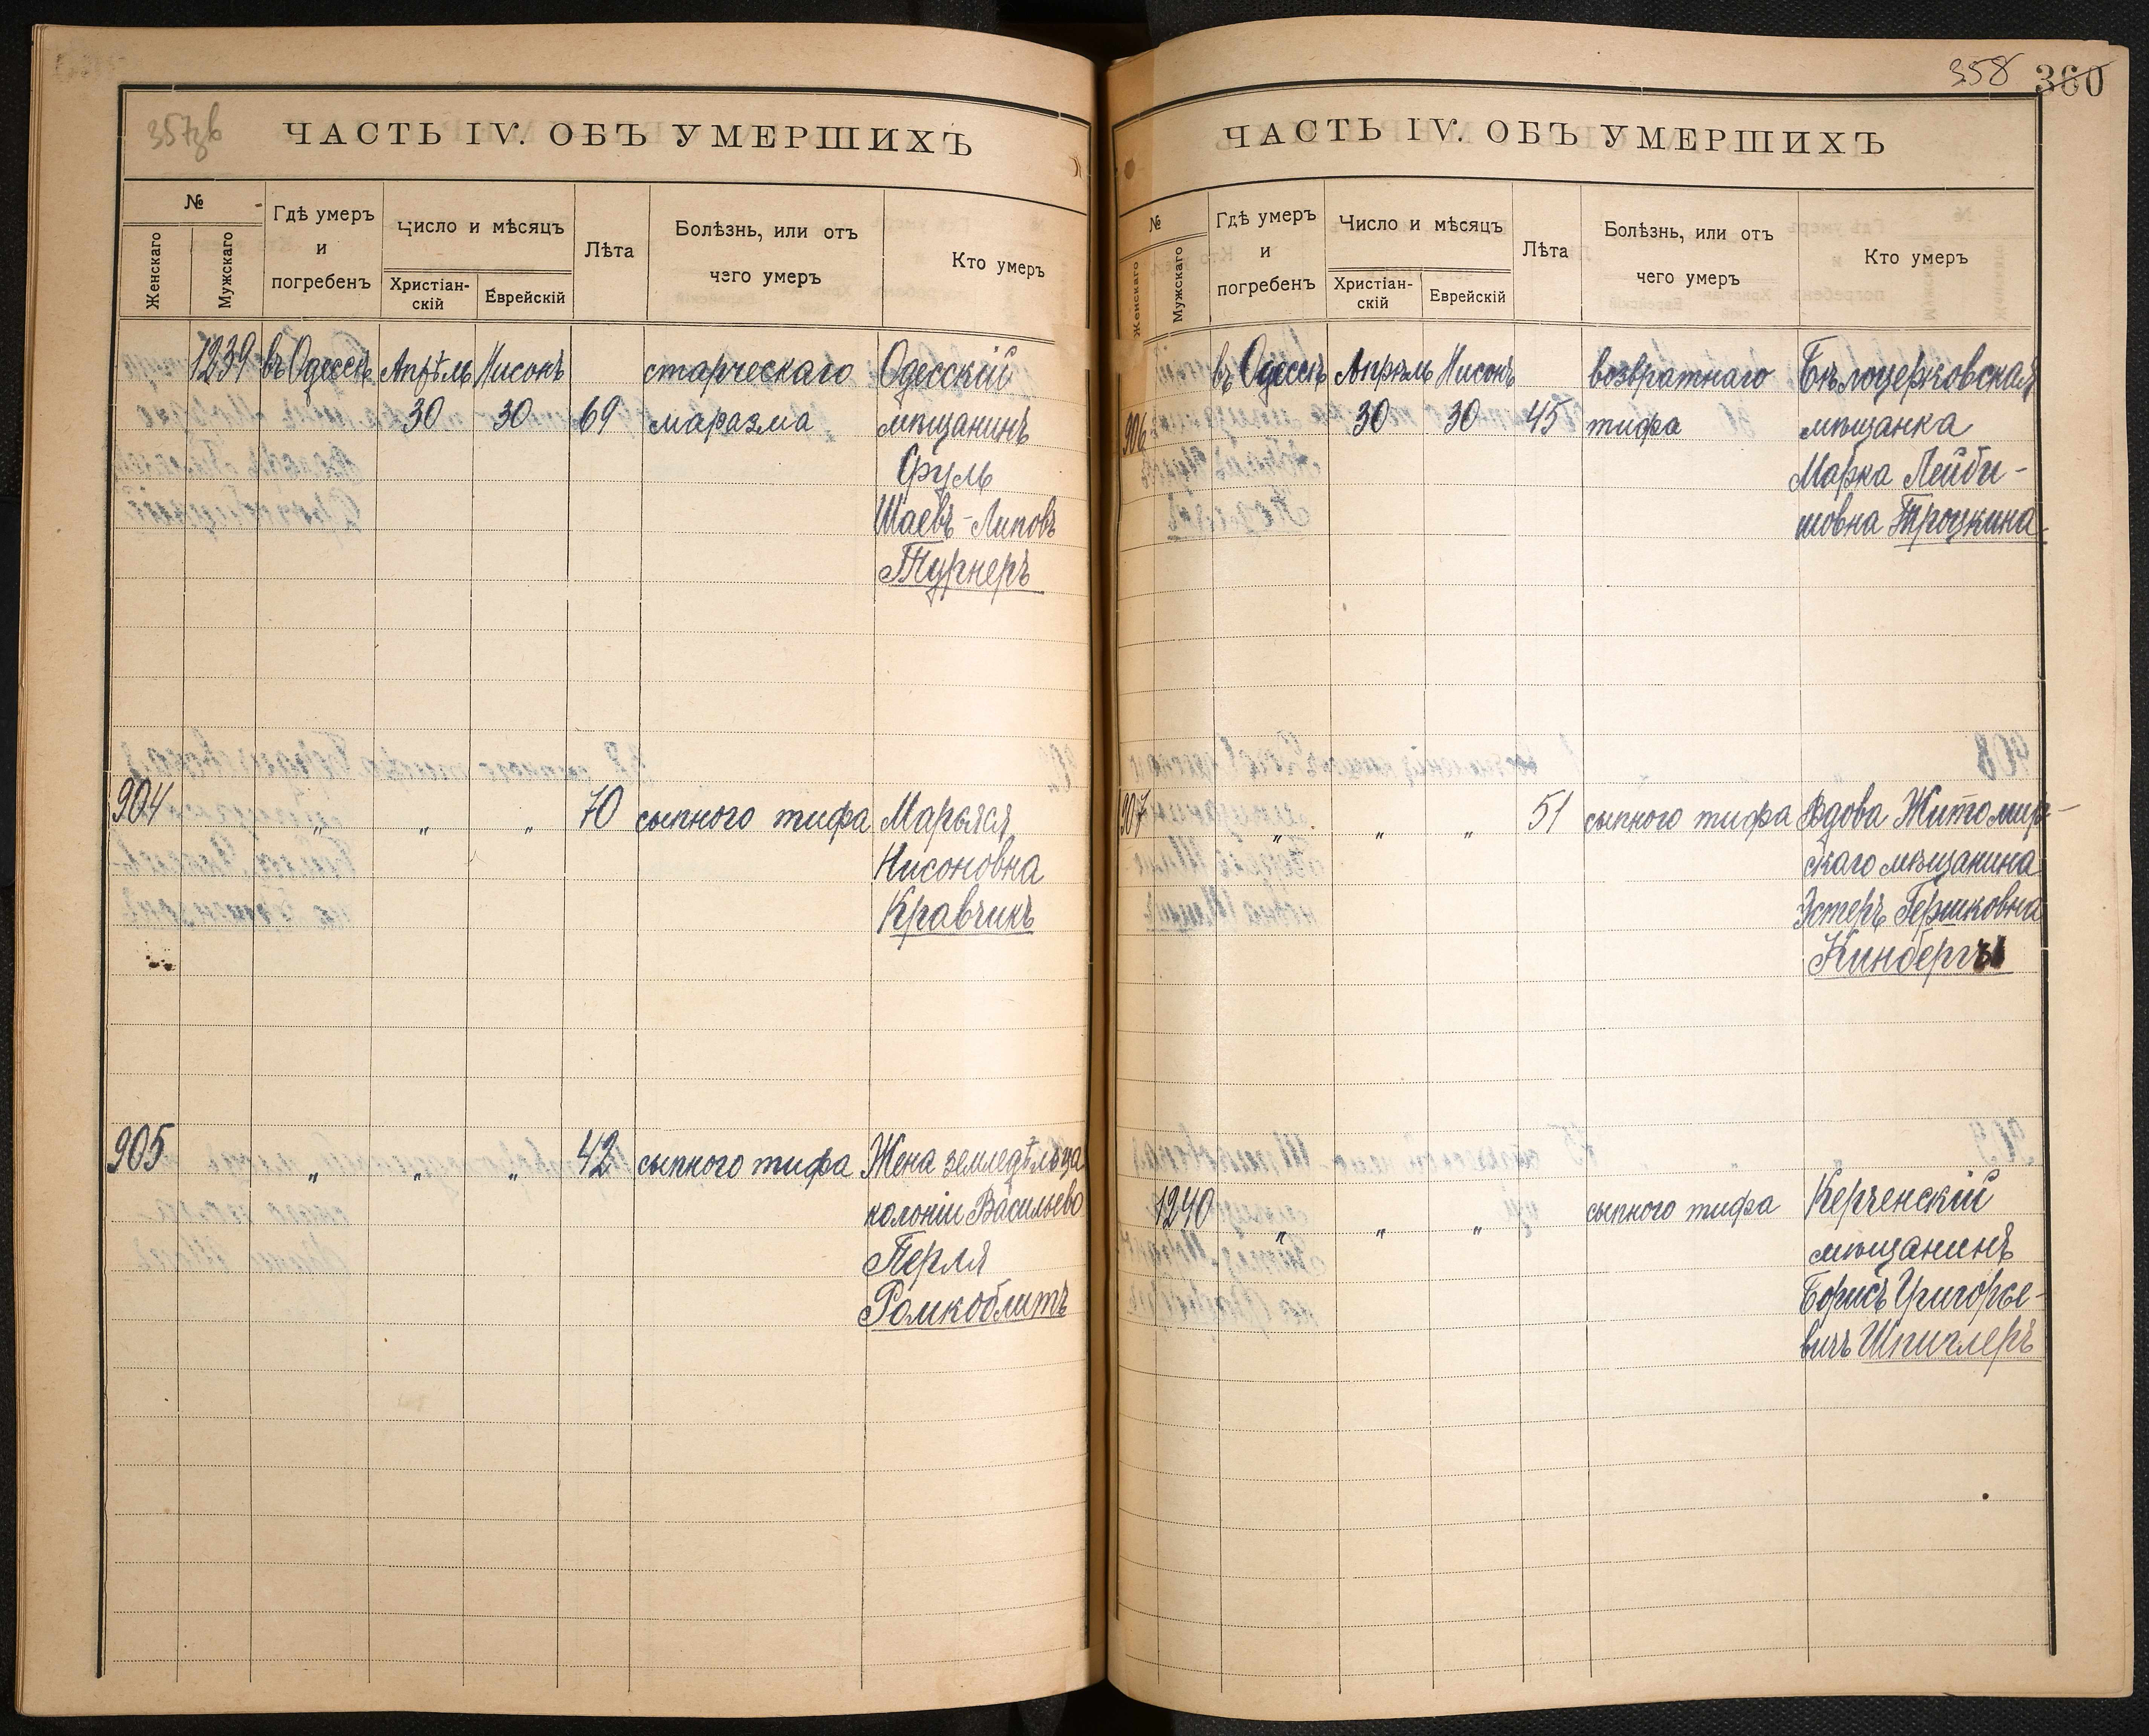 357зв
ЧАСТЬ IV. ОБЪ УМЕРШИХЪ
№
Женскаго
Мужскаго
Гдѣ умеръ
и
погребенъ
Число и мѣсяцъ
Христіан-
скій
Еврейскій
Лѣта
Болѣзнь, или отъ
чего умеръ
Кто умеръ
1239 въ Одессѣ Апрѣль Нисонъ старческаго Одесскій
30 30 69 маразма мѣщанинъ
Фуль
Шаевъ-Липовъ
Турнеръ
904 „ „ „ 70 сыпного тифа Марьяся
Нисоновна
Кравчикъ
905 „ „ „ 42 сыпного тифа Жена земледѣльца
колоніи Васильево
Перля
Ромкоблитъ
358 360
ЧАСТЬ IV. ОБЪ УМЕРШИХЪ
№
Женскаго
Мужскаго
Гдѣ умеръ
и
погребенъ
Число и мѣсяцъ
Христіан-
скій
Еврейскій
Лѣта
Болѣзнь, или отъ
чего умеръ
Кто умеръ
въ Одессѣ Апрѣль Нисонъ возвратнаго Бѣлоцерковская
906 30 30 45 тифа мѣщанка
Марка Лейби-
шовна Троцкина
907 „ „ „ 51 сыпного тифа Вдова Житомир-
скаго мѣщанина
Эстеръ Гершковна
Кинбергъ
1240 „ „ „ сыпного тифа Керченскій
мѣщанинъ
Борисъ Григорье-
вичъ Шпиглеръ